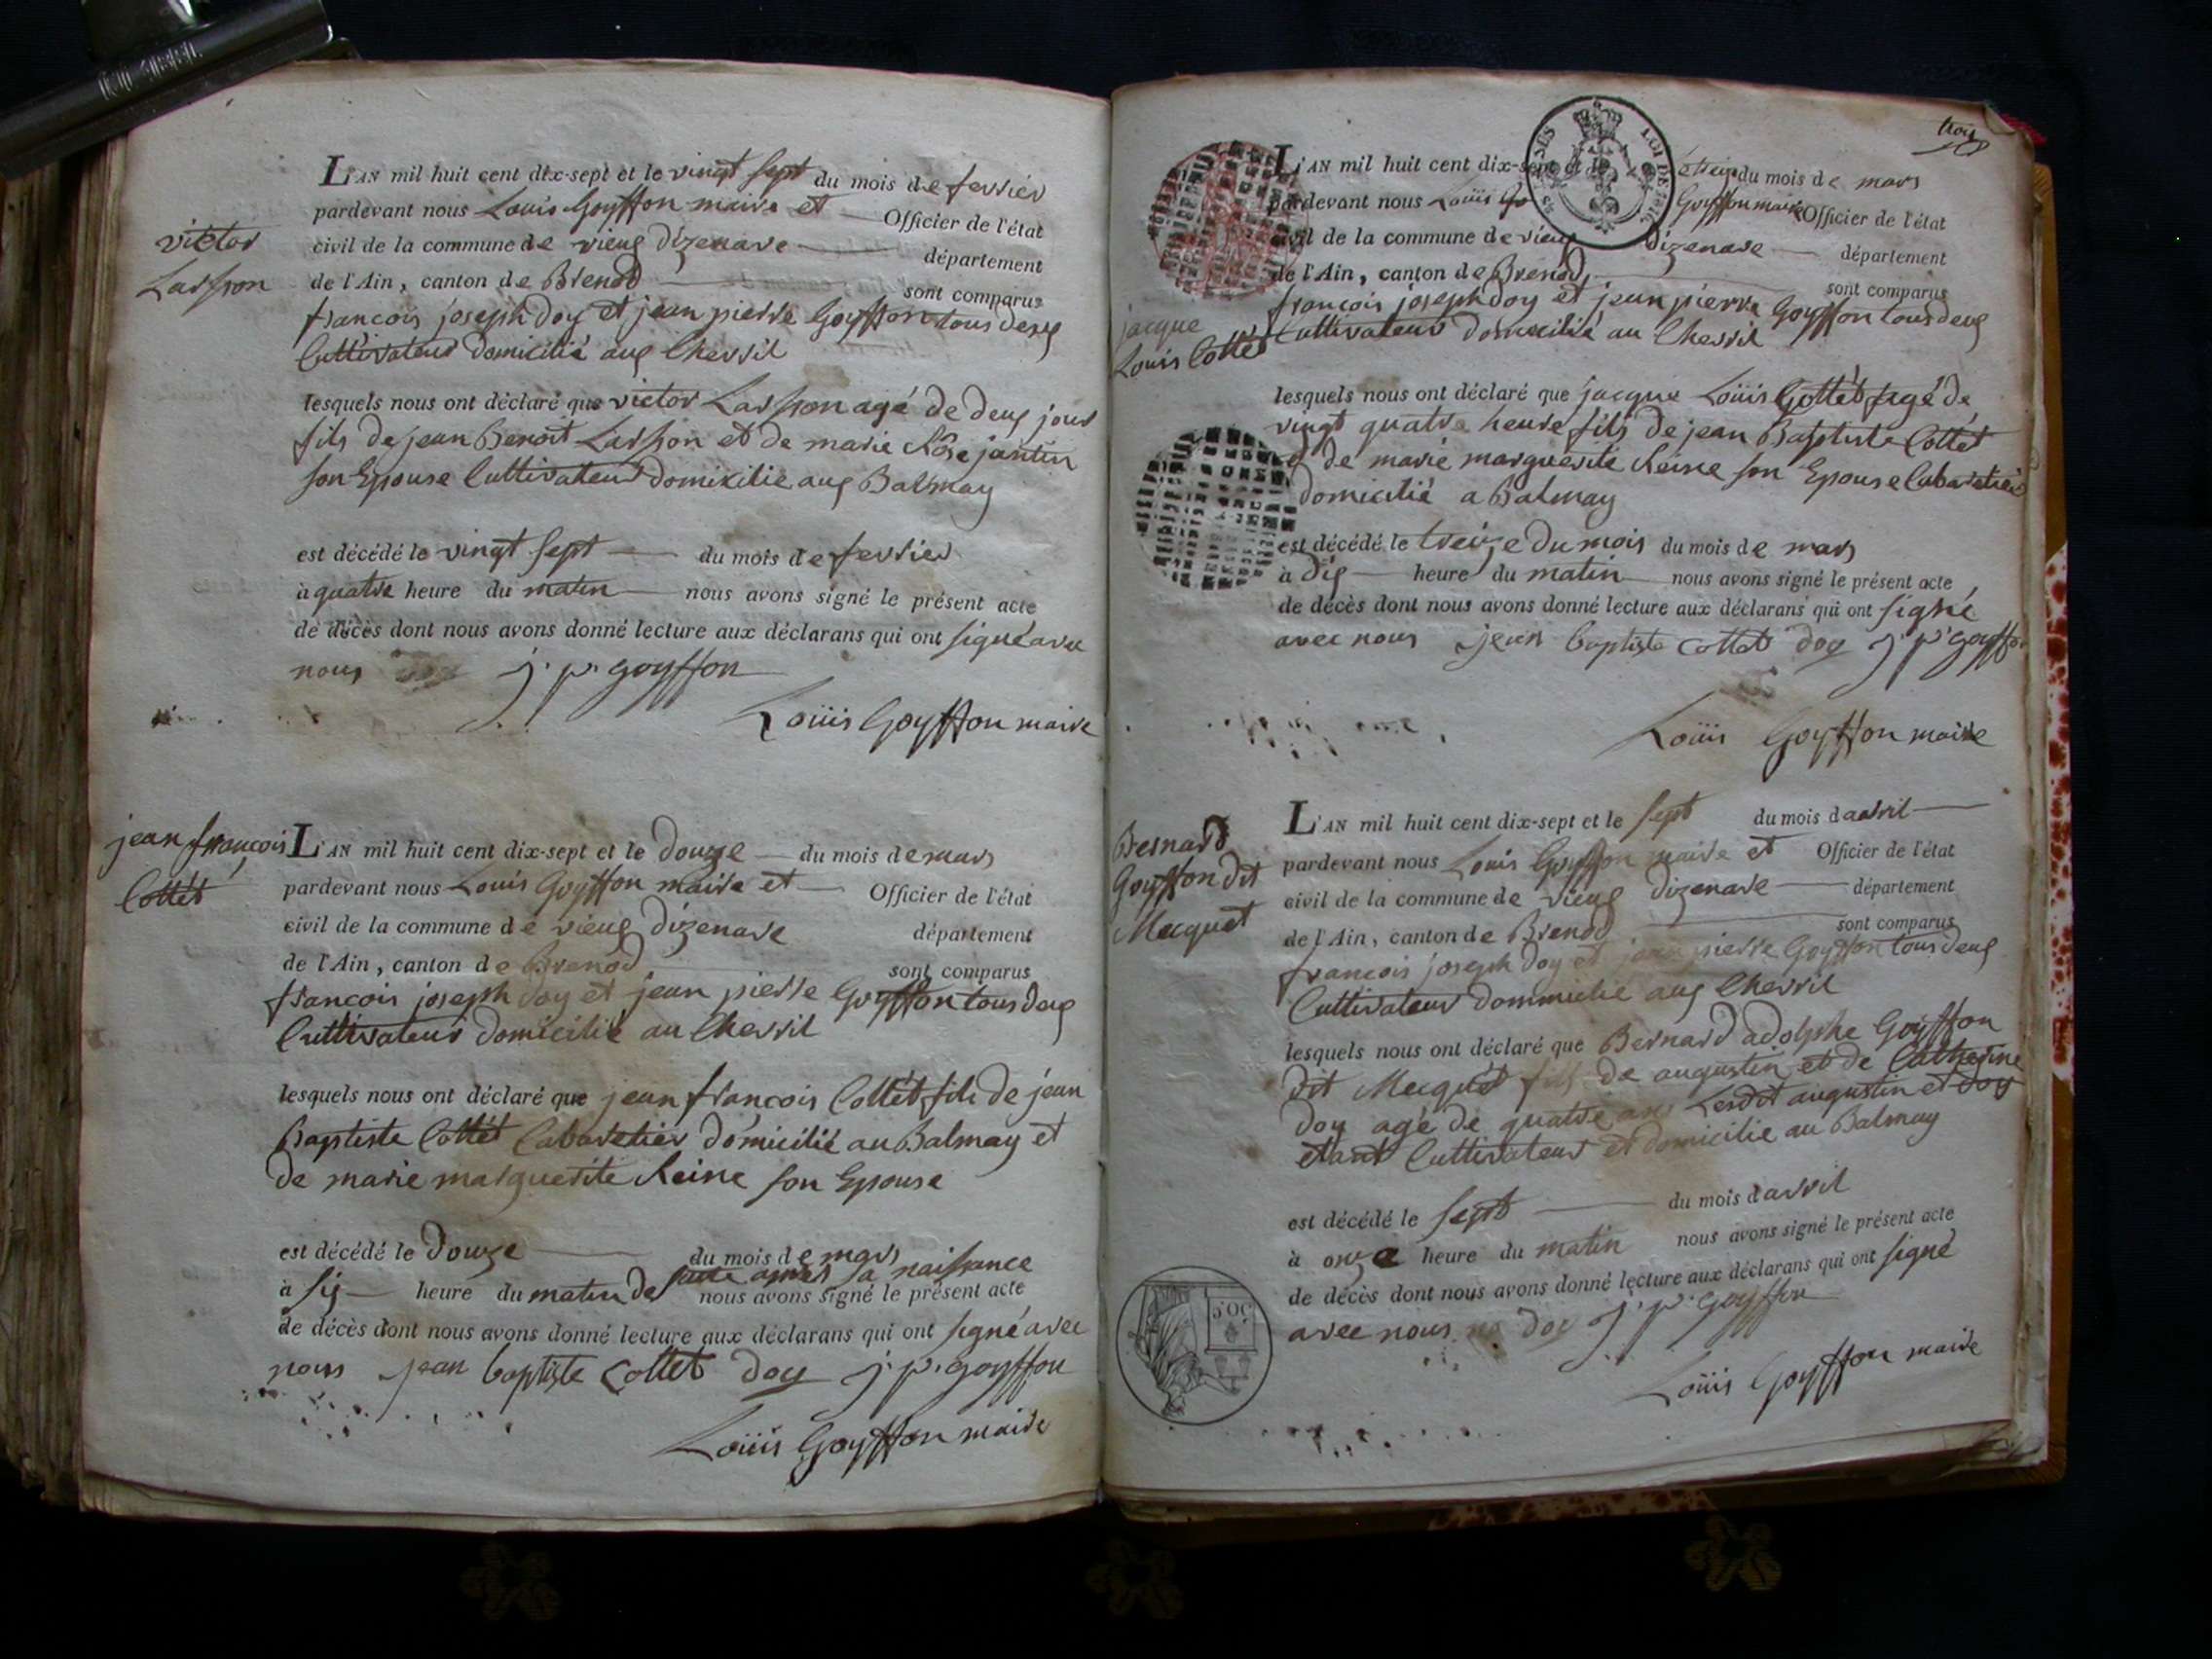 victor
Larsson
L'AN mil huit cent dix-sept et le vingt sept du mois de fevrier
pardevant nous Louis Goyffon maire et Officier de l'état
civil de la commune de vieux Dizenave département
de l'Ain, canton de Brenod sont comparus
francois joseph doy et jean pierre Goyffon tous deux
Cultivateur domicilié aux Chevril
lesquels nous ont déclaré que victor Larsson agé de deux jour
fils de jean Benoit Larsson et de marie Rose jantin
son Epouse Cultivateur domixilie aux Balmay
est décédé le vingt sept du mois de fevrier
à quatre heure du matin nous avons signé le présent acte
de décès dont nous avons donné lecture aux déclarans qui ont signé avec
nous j. p. goyffon
Loüis Goyffon maire
jean francois
Cottét
L'AN mil huit cent dix-sept et le douze du mois de mars
pardevant nous Louis Goyffon maire et Officier de l'état
civil de la commune de vieux Dizenave département
de l'Ain, canton de Brenod sont comparus
francois joseph doy et jean pierre Goyffon tous deux
Cultivateur domicilié au Chevril
lesquels nous ont déclaré que jean francois Cottét fils de jean
Baptiste Cottét Cabaretier domicilié au Balmay et
de marie marguerite Reine son Epouse
est décédé le douze du mois de mars
à six heure du matin de suite apres sa naissance
nous avons signé le présent acte
de décès dont nous avons donné lecture aux déclarans qui ont signé avec
nous jean baptiste Cottet doy j. p. goyffon
Loüis Goyffon maire
troy
jacque
Louis Cottét
L'AN mil huit cent dix-sept et le du mois de mars
pardevant nous Loüis Go Goyffon maire Officier de l'état
civil de la commune de vieux Dizenave département
de l'Ain, canton de Brenod sont comparus
francois joseph doy et jean pierre Goyffon tous deux
Cultivateur domicilié au Chevril
lesquels nous ont déclaré que jacque Loüis Cottét agé de
vingt quatre heure fils de jean Baptiste Cottét
et de marie marguerite Reine son Epouse Cabaretier
domicilié a Balmay
est décédé le treize du mois du mois de mars
à dix heure du matin nous avons signé le présent acte
de décès dont nous avons donné lecture aux déclarans qui ont signé
avec nous jean baptiste Cottet doy j. p. goyffon
Loüis Goyffon maire
Bernard
Goyffon dit
Mecquet
L'AN mil huit cent dix-sept et le sept du mois d'avril
pardevant nous Louis Goyffon maire et Officier de l'état
civil de la commune de vieux Dizenave département
de l'Ain, canton de Brenod sont comparus
francois joseph doy et jean pierre Goyffon tous deux
Cultivateur dommicilie aux Chevril
lesquels nous ont déclaré que Bernard adolphe Goyffon
dit Mecquet fils de augustin et de Catherine
doy agé de quatre ans Lesdit augustin et doy
etant Cultivateur et domicilie au Balmay
est décédé le sept du mois d'avril
à onze heure du matin nous avons signé le présent acte
de décès dont nous avons donné lecture aux déclarans qui ont signé
avec nous doy j. p. goyffon
Loüis Goyffon maire